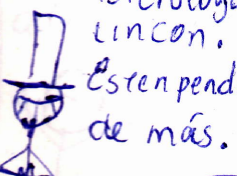 Lincon.
Esten pend
de más.